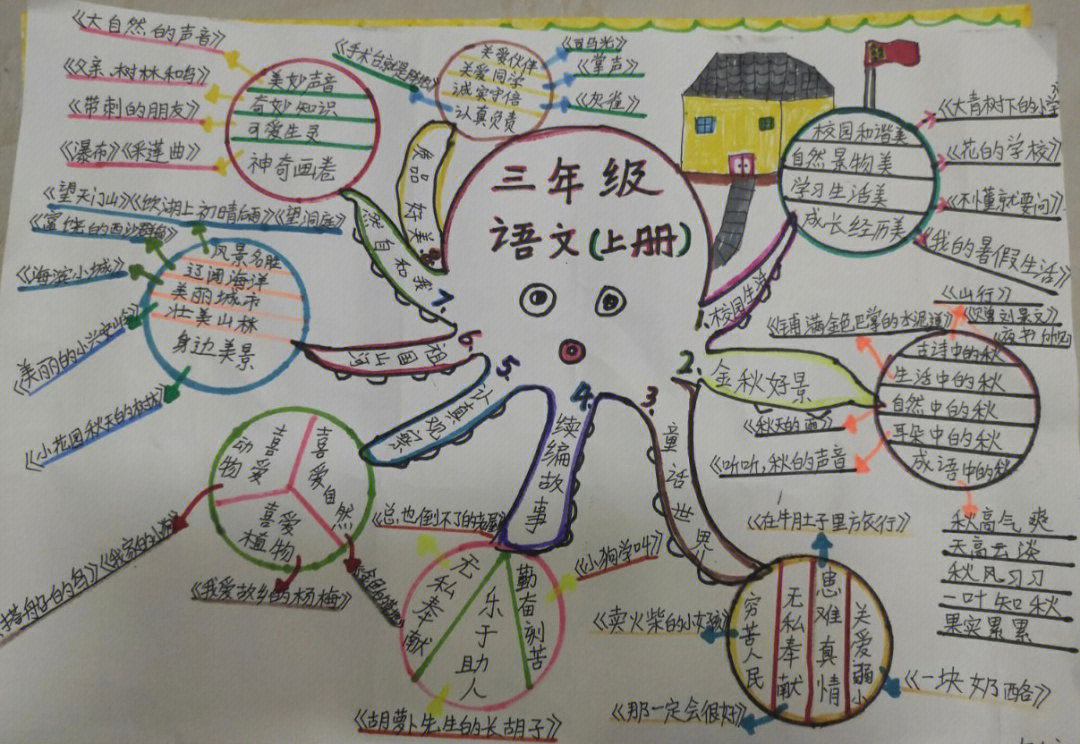 三年级
语文(上册)
1.
校园生活
校园和谐美
自然景物美
学习生活美
成长经历美
《花的学校》
《不懂就要问》
《我的暑假生活》
2.
金秋好景
古诗中的秋
生活中的秋
自然中的秋
耳朵中的秋
成语中的秋
《山行》
《铺满金色巴掌的水泥道》
《秋天的雨》
《听听,秋的声音
秋高气爽
天高云淡
秋风习习
一叶知秋
果实累累
3.
童话世界
穷苦人民
无私奉献
患难真情
关爱弱小
《在牛肚子里旅行》
《卖火柴的小女孩》
《那一定会很好》
《一块奶酪》
4.
续编故事
无私奉献
乐于助人
勤奋刻苦
《总也倒不了的老屋》
《小狗学叫》
《胡萝卜先生的长胡子》
5.
认真观察
喜爱动物
喜爱自然
喜爱植物
搭船的鸟》
《我爱故乡的杨梅》
6.
祖国山河
风景名胜
辽阔海洋
美丽城市
壮美山林
身边美景
《望天门山》《饮湖上初晴后雨》《望洞庭》
《富饶的西沙群岛》
《海滨小城》
《美丽的小兴安岭》
7.
美妙声音
奇妙知识
可爱生灵
神奇画卷
《大自然的声音》
《父亲、树林和鸟》
《带刺的朋友》
《瀑布》《采莲曲》
8.
美好品质
关爱伙伴
关爱同学
诚实守信
认真负责
《手术台就是阵地》
《司马光》
《掌声》
《灰雀》